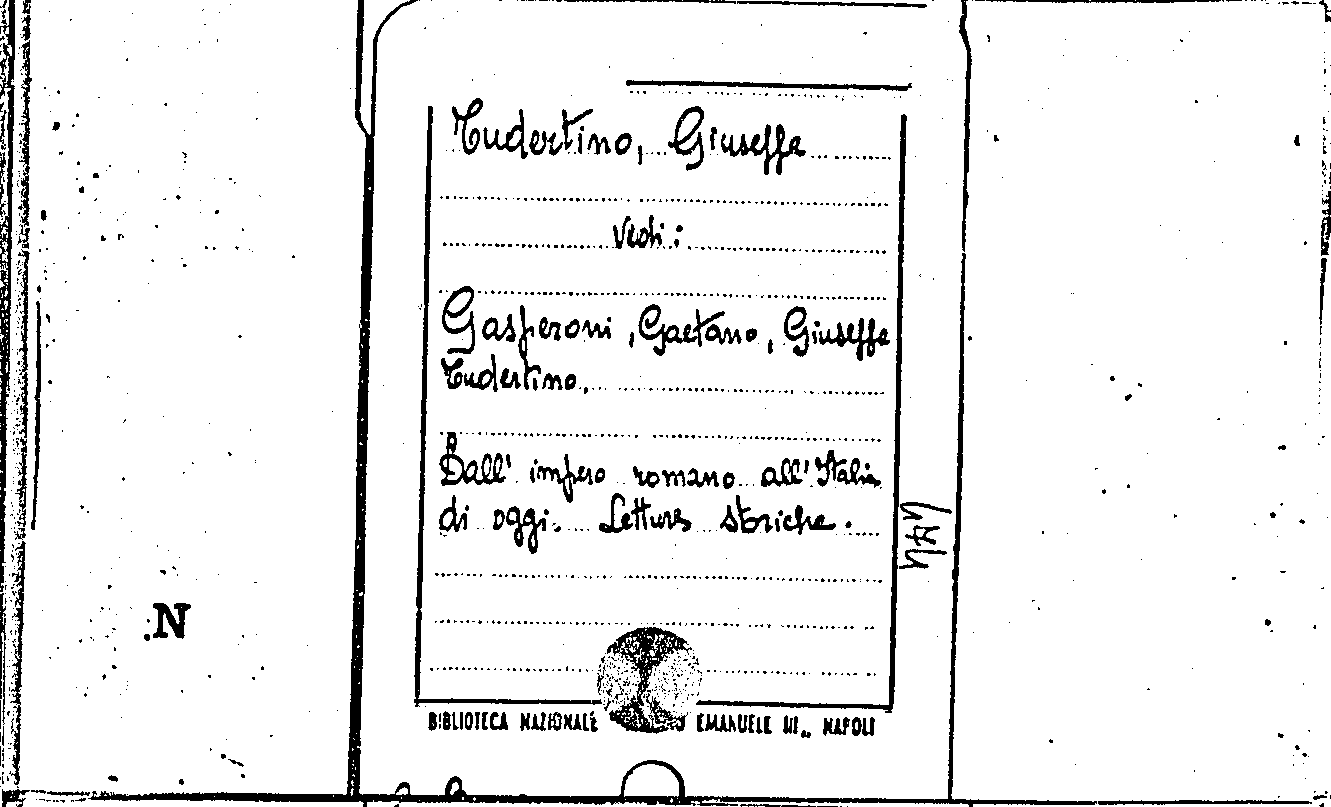 Tudertino, Giuseppa
vedi:
Gasperoni, Gaetano, Giuseppa
Tudertino.
Dall' impero romano all' Italia
di oggi. Letture storiche.
N
BIBLIOTECA NAZIONALE EMANUELE III„ NAPOLI